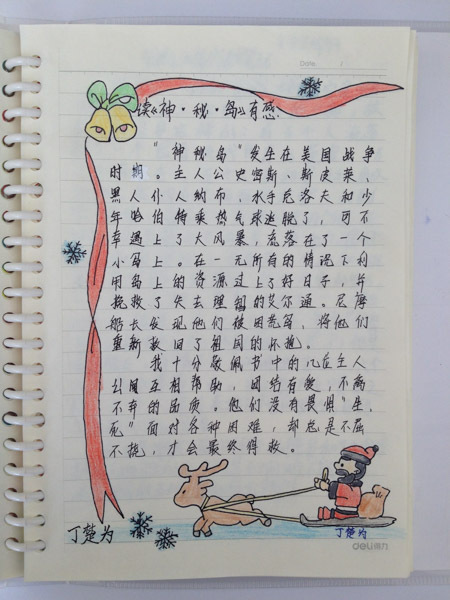 Date
读《神·秘·岛》有感
"神秘岛"发生在美国战争
时期。主人公史密斯、斯皮莱、
黑人仆人纳布、水手危洛夫和少
年哈伯特乘热气球逃脱了，可不
幸遇上了大风暴，流落在了一个
小岛上。在一无所有的情况下利
用岛上的资源过上了好日子，并
挽救了失去理智的艾尔通。尼摩
船长发现他们被困荒岛，将他们
重新救回了祖国的怀抱。
我十分敬佩书中的几位主人
公间互相帮助，团结有爱，不离
不弃的品质。他们没有畏惧"生、
死"面对各种困难，却总是不屈
不挠，才会最终得救。
丁楚为
丁楚为
deli得力